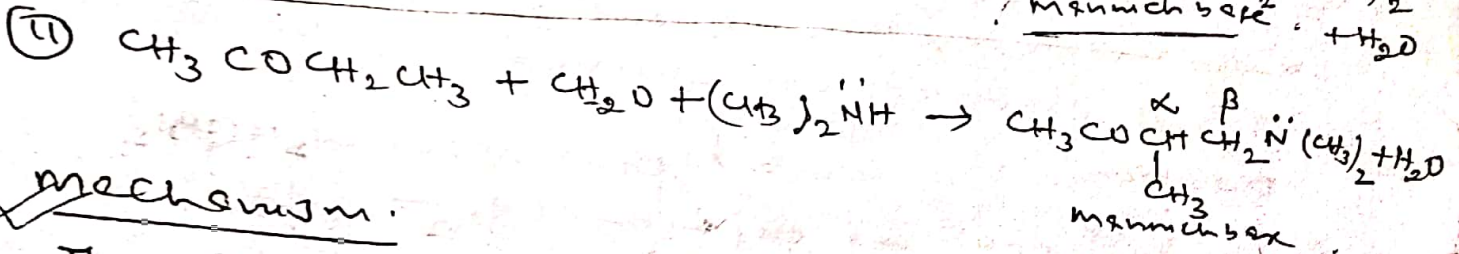 Mannich base. +H₂O
(11) CH₃COCH₂CH₃ + CH₂O + (CH₃)₂N̈H → CH₃COCHCH₂N̈(CH₃)₂ + H₂O
α β
CH₃
mannich base
Mechanism.